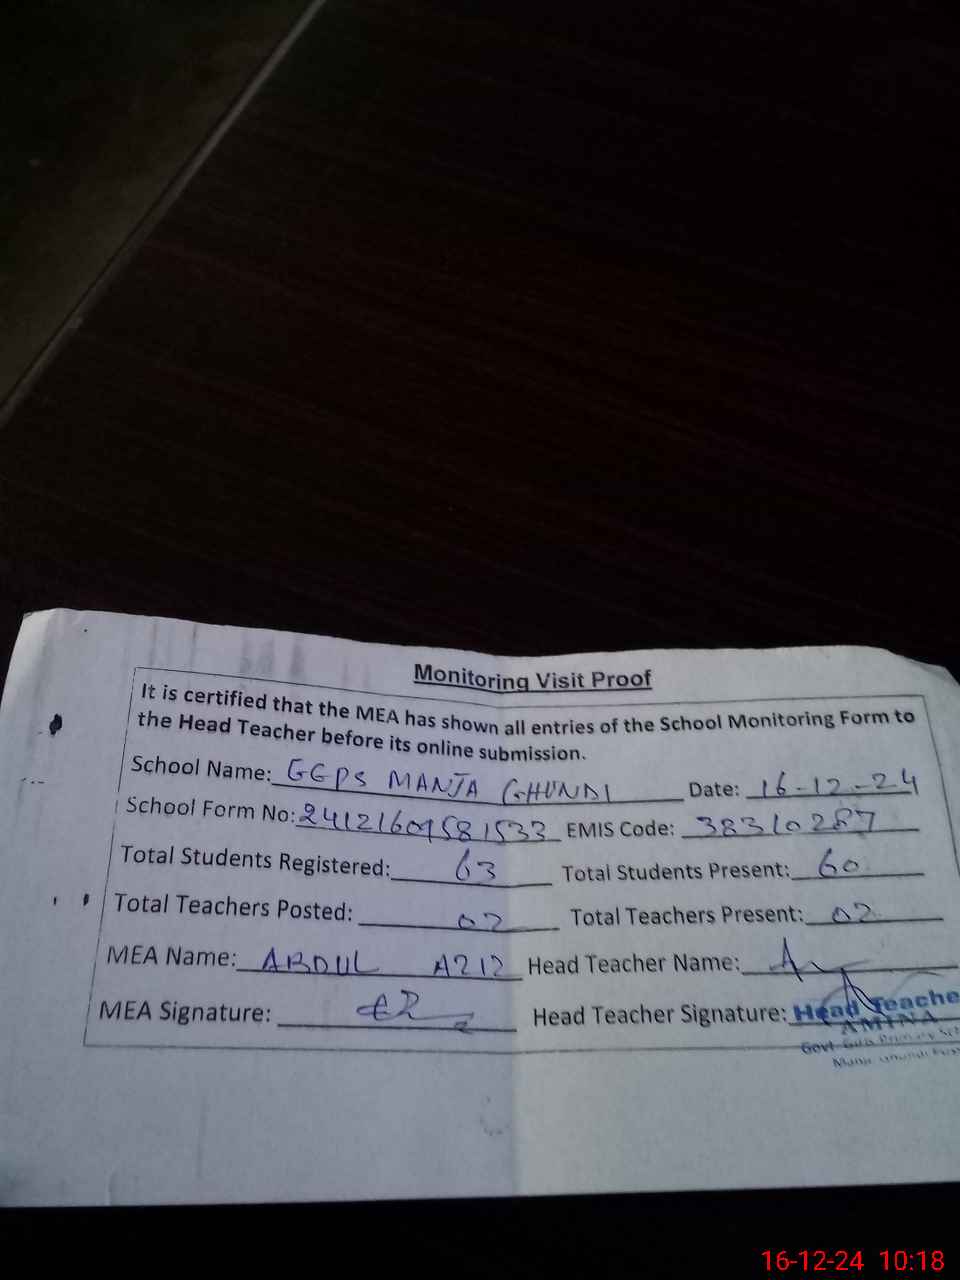 Monitoring Visit Proof
It is certified that the MEA has shown all entries of the School Monitoring Form to
the Head Teacher before its online submission.
School Name: GGPS MANJA GHUNDI Date: 16-12-24
School Form No: 2412160958 1533 EMIS Code: 38310287
Total Students Registered: 63 Total Students Present: 60
Total Teachers Posted: 02 Total Teachers Present: 02
MEA Name: ABDUL AZIZ Head Teacher Name:
MEA Signature: Head Teacher Signature: Head Teache
AMINA
Govt Girls Primary Sc
16-12-24 10:18